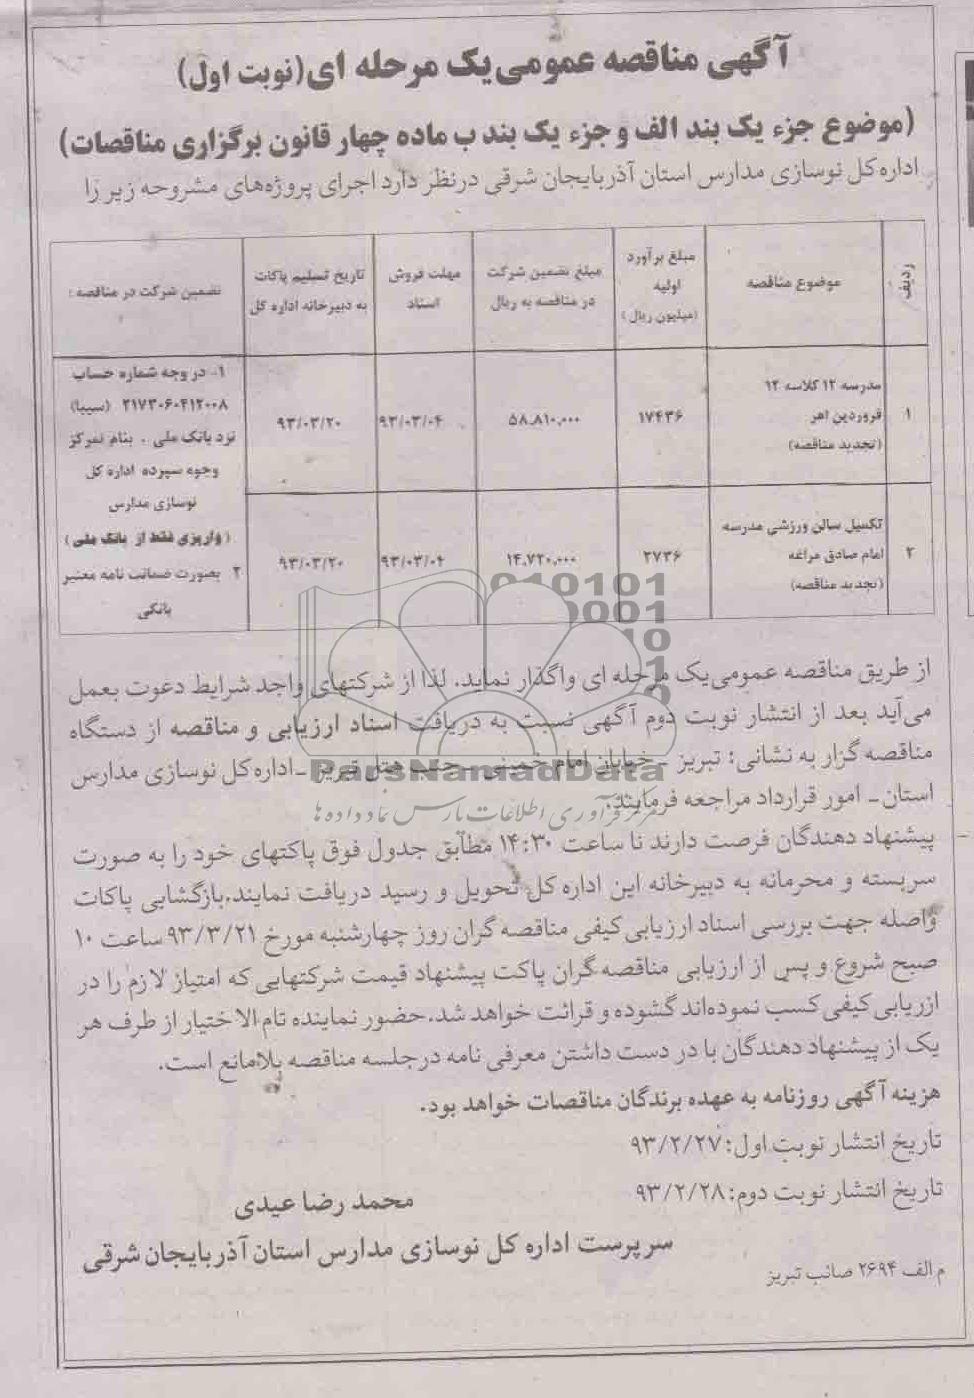 آگهی مناقصه عمومی یک مرحله ای (نوبت اول)
(موضوع جزء یک بند الف و جزء یک بند ب ماده چهار قانون برگزاری مناقصات)
اداره کل نوسازی مدارس استان آذربایجان شرقی درنظر دارد اجرای پروژه‌های مشروحه زیر را
ردیف
موضوع مناقصه
مبلغ برآورد
اولیه
(میلیون ریال)
مبلغ تضمین شرکت
در مناقصه به ریال
مهلت فروش
اسناد
تاریخ تسلیم پاکات
به دبیرخانه اداره کل
تضمین شرکت در مناقصه :
۱
مدرسه ۱۲ کلاسه ۱۲
فروردین اهر
(تجدید مناقصه)
۱۷۴۳۶
۵۸.۸۱۰.۰۰۰
۹۳/۰۳/۰۴
۹۳/۰۳/۲۰
۱- در وجه شماره حساب
۲۱۷۳۰۶۰۴۱۲۰۰۸ (سیبا)
نزد بانک ملی . بنام تمرکز
وجوه سپرده اداره کل
نوسازی مدارس
(واریزی فقط از بانک ملی)
۲ بصورت ضمانت نامه معتبر
بانکی
۲
تکمیل سالن ورزشی مدرسه
امام صادق مراغه
(تجدید مناقصه)
۲۷۳۶
۱۴.۷۲۰.۰۰۰
۹۳/۰۳/۰۴
۹۳/۰۳/۲۰
از طریق مناقصه عمومی یک مرحله ای واگذار نماید. لذا از شرکتهای واجد شرایط دعوت بعمل
می‌آید بعد از انتشار نوبت دوم آگهی نسبت به دریافت اسناد ارزیابی و مناقصه از دستگاه
مناقصه گزار به نشانی: تبریز - خیابان امام خمینی - جنب هتل تبریز - اداره کل نوسازی مدارس
استان - امور قرارداد مراجعه فرمایند.
ParsNamadData
مرکز فرآوری اطلاعات پارس نماد داده ها
پیشنهاد دهندگان فرصت دارند تا ساعت ۱۴:۳۰ مطابق جدول فوق پاکتهای خود را به صورت
سربسته و محرمانه به دبیرخانه این اداره کل تحویل و رسید دریافت نمایند. بازگشایی پاکات
واصله جهت بررسی اسناد ارزیابی کیفی مناقصه گران روز چهارشنبه مورخ ۹۳/۳/۲۱ ساعت ۱۰
صبح شروع و پس از ارزیابی مناقصه گران پاکت پیشنهاد قیمت شرکتهایی که امتیاز لازم را در
ازریابی کیفی کسب نموده‌اند گشوده و قرائت خواهد شد. حضور نماینده تام الاختیار از طرف هر
یک از پیشنهاد دهندگان با در دست داشتن معرفی نامه در جلسه مناقصه بلامانع است.
هزینه آگهی روزنامه به عهده برندگان مناقصات خواهد بود.
تاریخ انتشار نوبت اول: ۹۳/۲/۲۷
تاریخ انتشار نوبت دوم: ۹۳/۲/۲۸
محمد رضا عیدی
سرپرست اداره کل نوسازی مدارس استان آذربایجان شرقی
م الف ۲۶۹۴ صائب تبریز